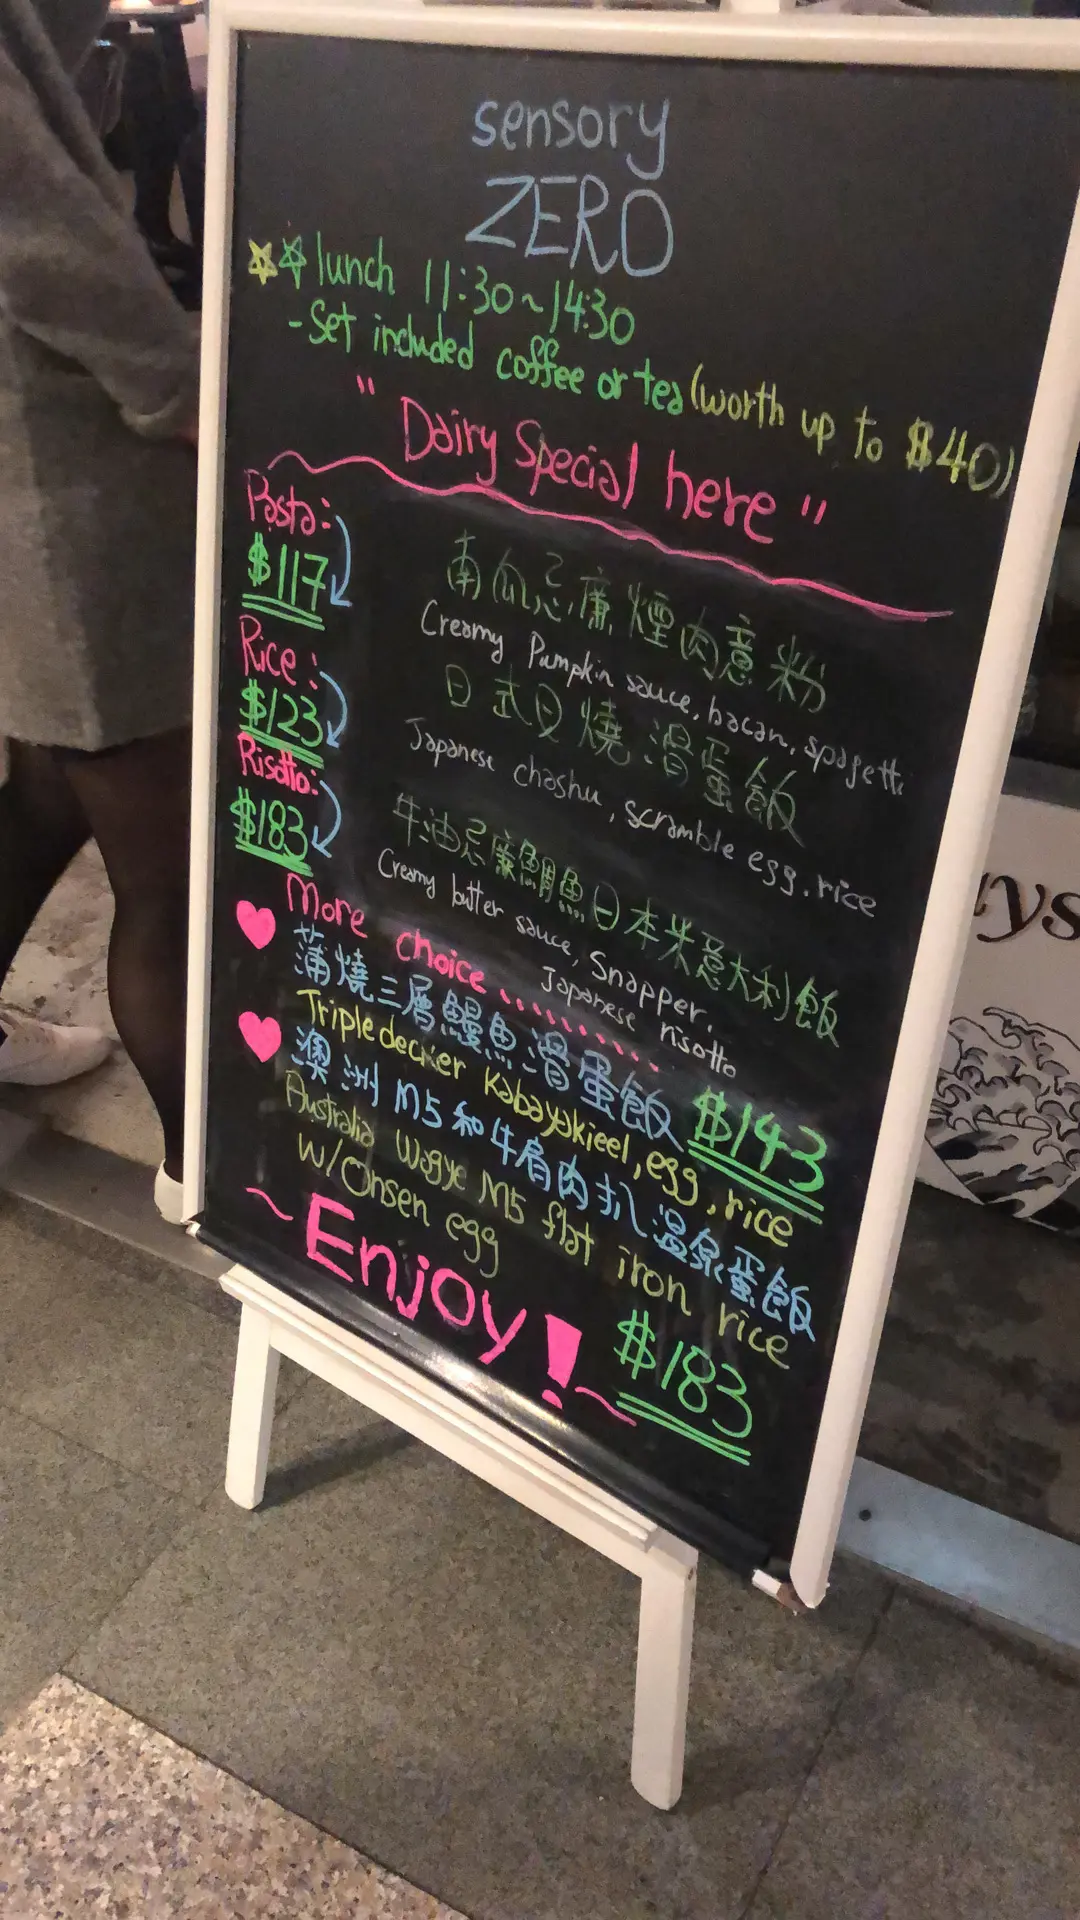 sensory
ZERO
lunch 11:30~14:30
-Set included coffee or tea (worth up to $40)
"Dairy Special here"
Pasta:
$117
南瓜忌廉煙肉意粉
Creamy Pumpkin sauce, bacan, spagetti
Rice:
$123
日式叉燒滑蛋飯
Japanese chashu, scramble egg, rice
Risotto:
$183
牛油忌廉鯛魚日本米意大利飯
Creamy butter sauce, Snapper,
Japanese risotto
More choice.........
蒲燒三層鰻魚滑蛋飯 $143
Triple decker Kabayakieel, egg, rice
澳洲M5和牛肩肉扒温泉蛋飯
Australia Wagye M5 flat iron rice
w/Onsen egg
$183
~Enjoy!~
ys